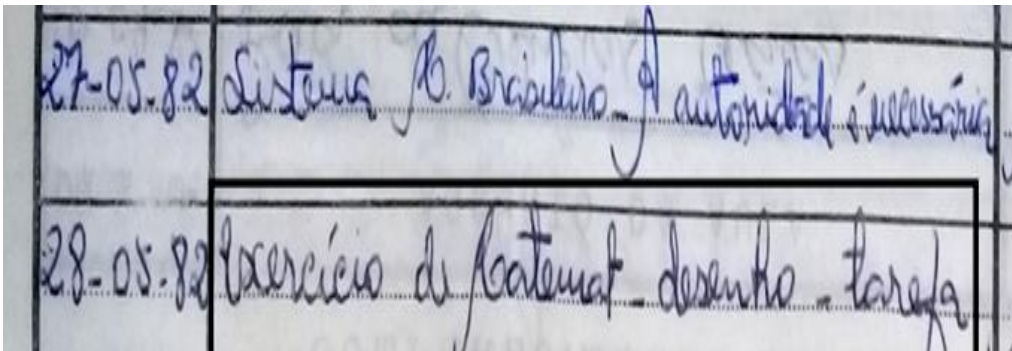 27-05-82 Sistema M. Brasileiro - A autoridade é necessária
28-05-82 Exercício de Matemat - desenho - tarefa